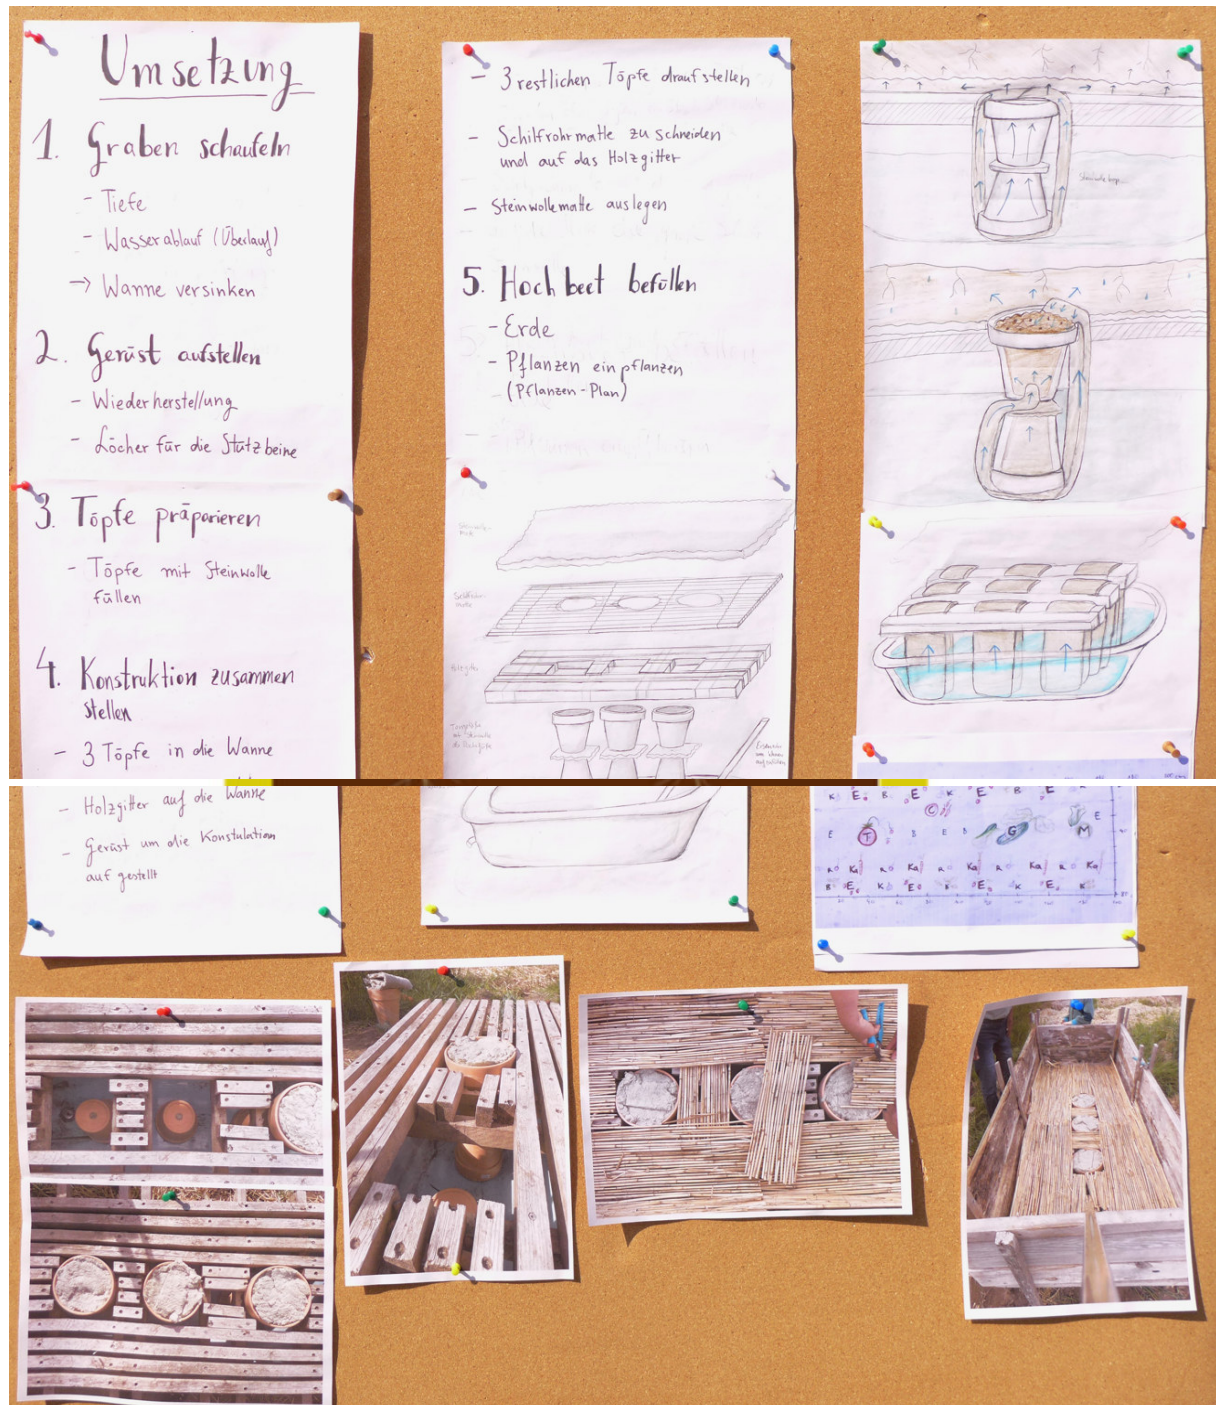 Umsetzung
1. Graben schaufeln
- Tiefe
- Wasserablauf (Überlauf)
→ Wanne versinken
2. Gerüst aufstellen
- Wiederherstellung
- Löcher für die Stützbeine
3. Töpfe präparieren
- Töpfe mit Steinwolle
füllen
4. Konstruktion zusammen
stellen
- 3 Töpfe in die Wanne
- Holzgitter auf die Wanne
- Gerüst um die Konstulation
auf gestellt
- 3 restlichen Töpfe draufstellen
- Schilfrohrmatte zu schneiden
und auf das Holzgitter
- Steinwollematte auslegen
5. Hochbeet befüllen
- Erde
- Pflanzen einpflanzen
(Pflanzen-Plan)
Holzgitter
K E B E K E B E K
C
E T B B E B G M E
R Ka R Ka R Ka R Ka
B E K E B K E K